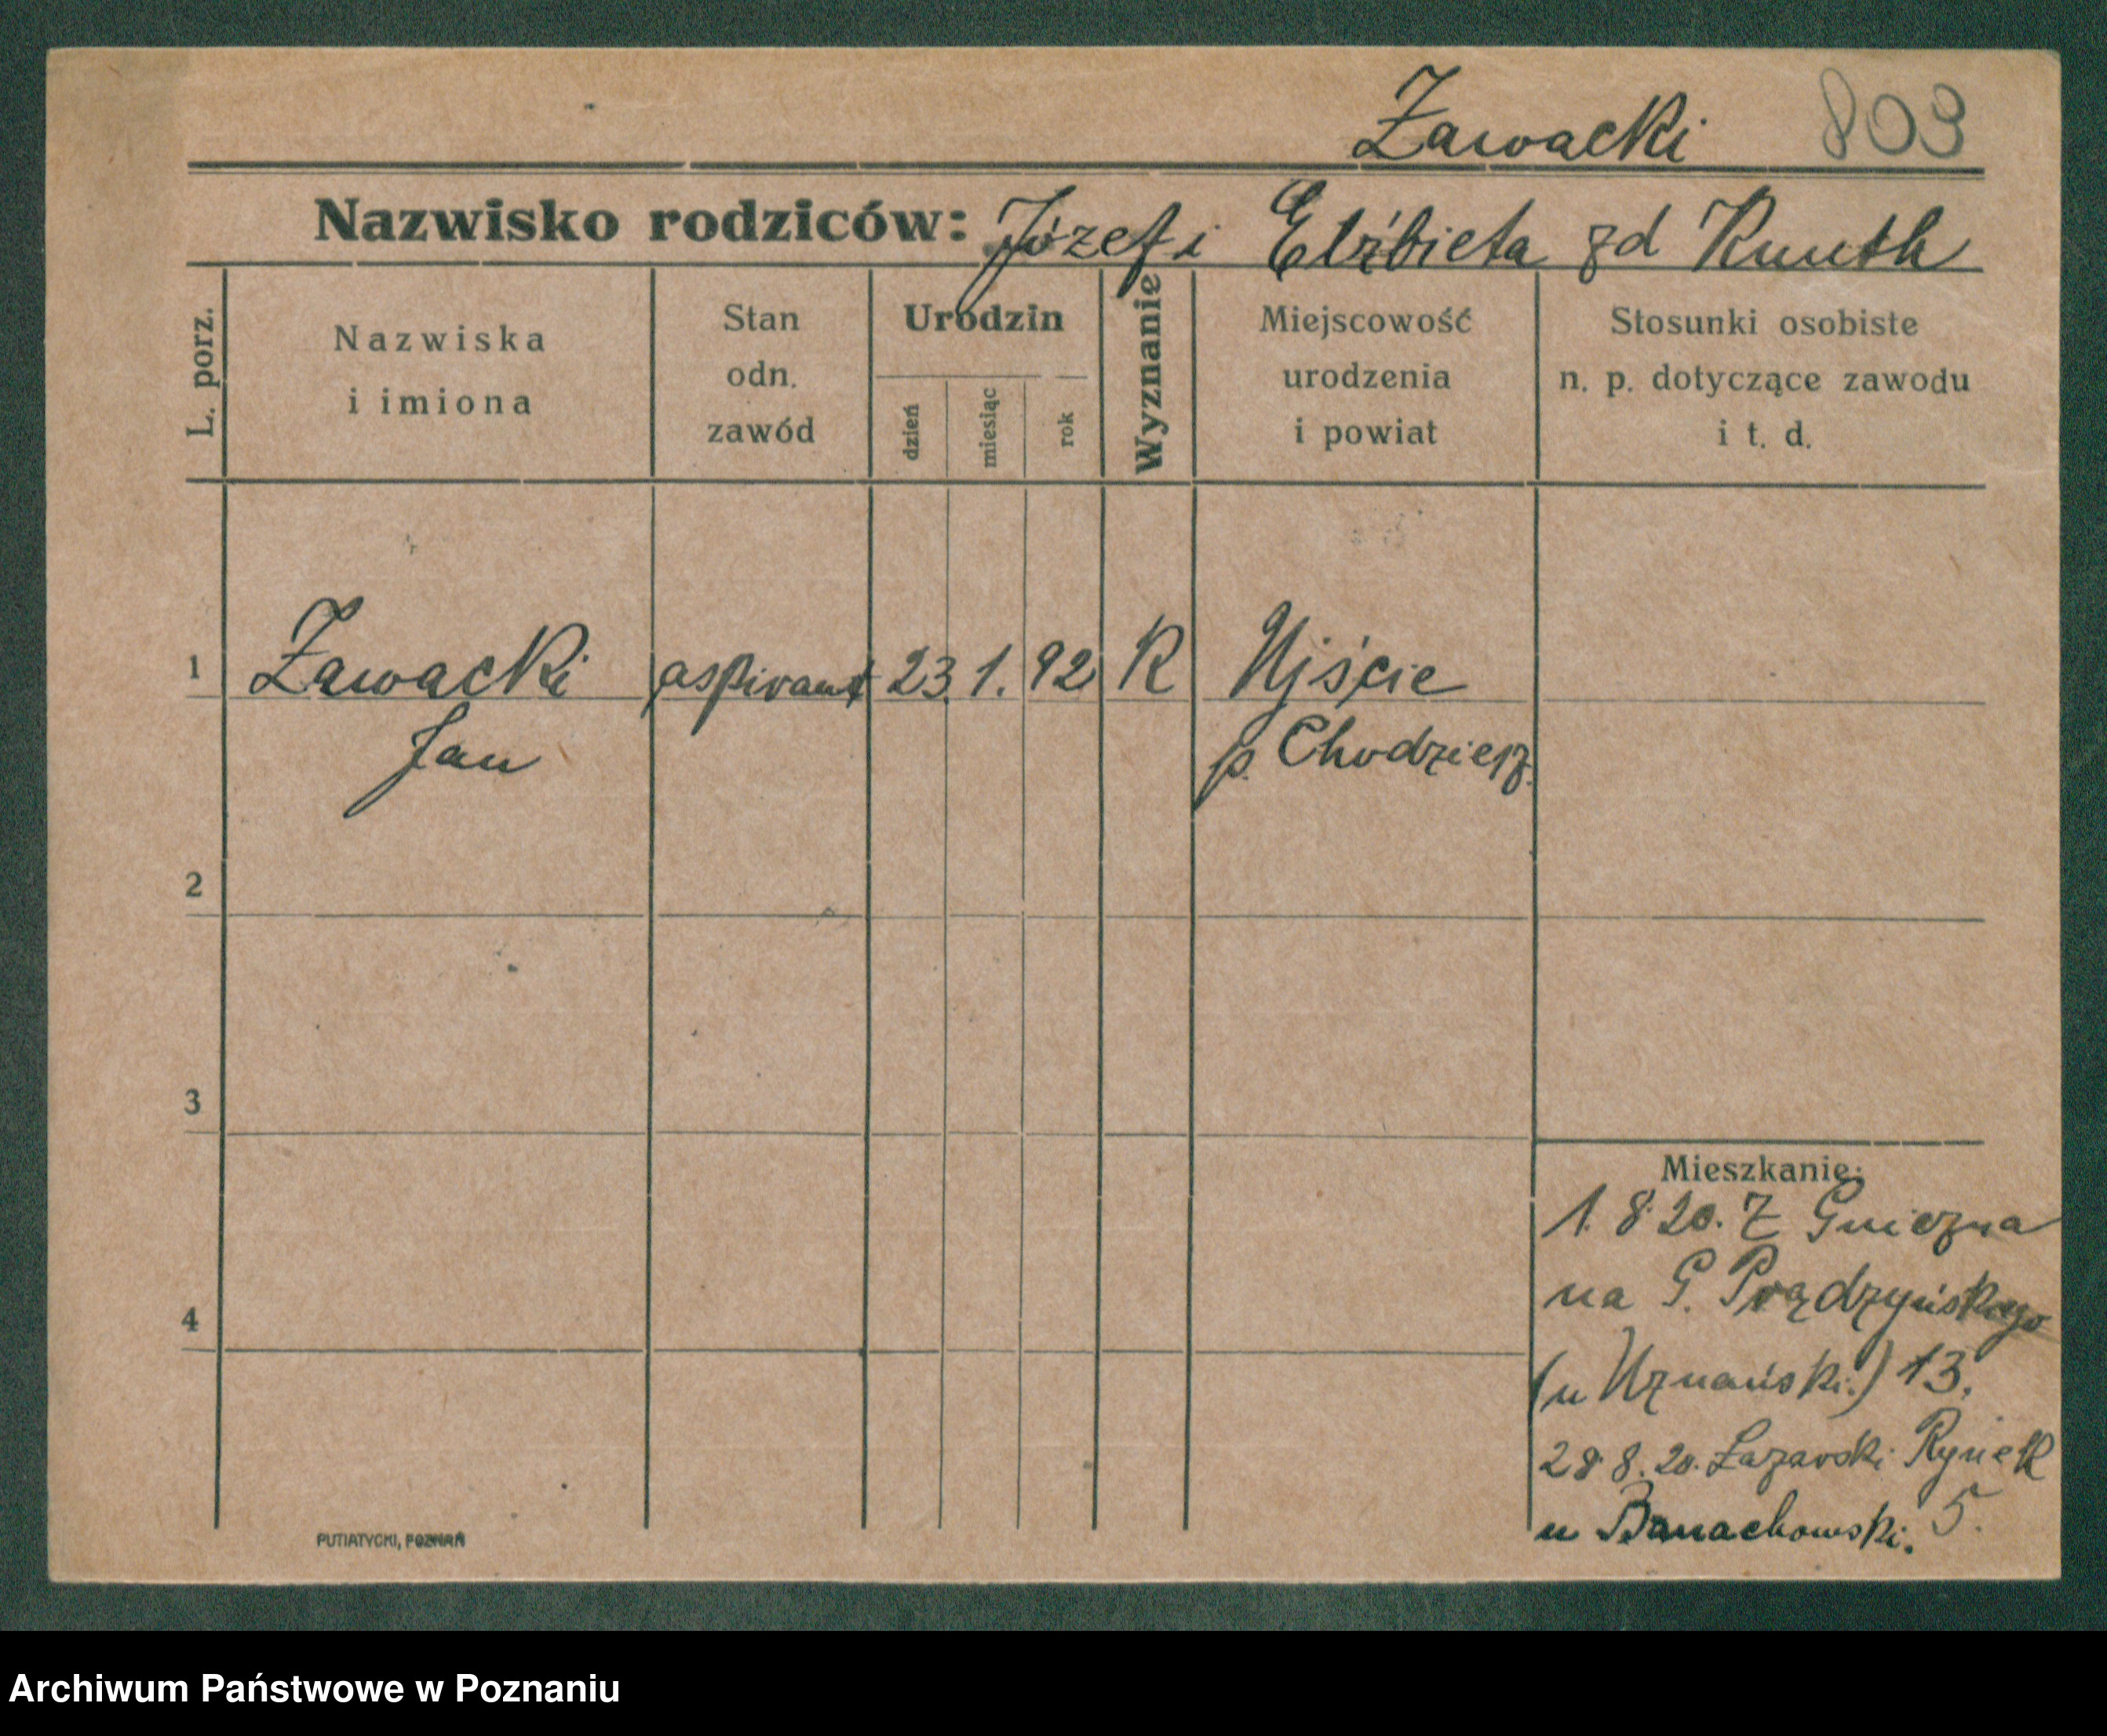 Zawacki 803
Nazwisko rodziców: Józef i Elżbieta zd Knuth
L. porz.
Nazwiska
i imiona
Stan
odn.
zawód
Urodzin
dzień
miesiąc
rok
Wyznanie
Miejscowość
urodzenia
i powiat
Stosunki osobiste
n. p. dotyczące zawodu
i t. d.
1 Zawacki aspirant 23. 1. 92 R Ujście
Jan p. Chodzież.
2
3
4
Mieszkanie:
1. 8. 20. Z Gniezna
na G. Prądzyńskiego
(u Uznański.) 13.
28. 8. 20. Łazarski Rynek
u Banachowski. 5.
PUTIATYCKI, POZNAŃ
Archiwum Państwowe w Poznaniu